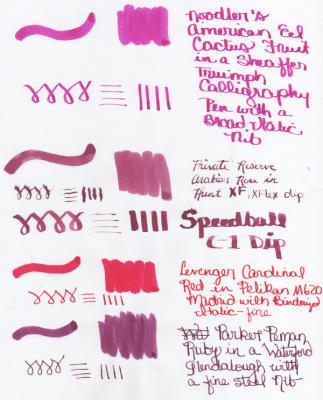 Noodler's
American Eel
Cactus Fruit
in a Sheaffer
Triumph
Calligraphy
Pen with a
Broad Italic
Nib
Private Reserve
Avation Rose in
Hunt XF, XFlex dip
Speedball
C-1 Dip
Levenger Cardinal
Red in Pelikan M620
Madrid with Binderized
italic-fine
Parker Penman
Ruby in a Waterford
Glendalough with
a fine steel Nib